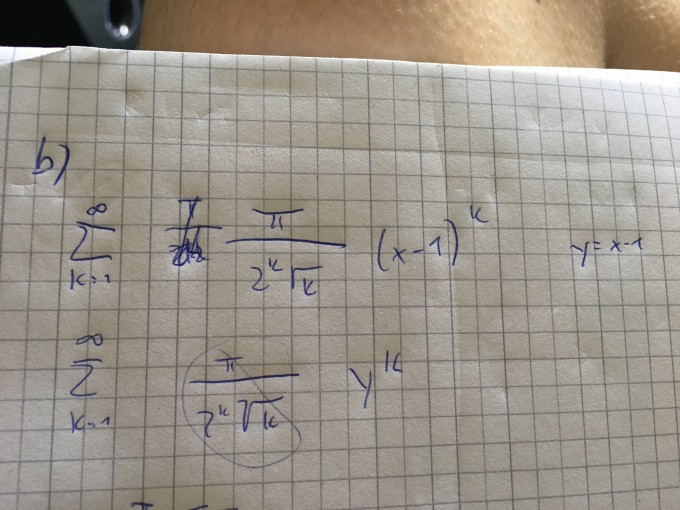 b)
∞ ∑ k=1 π / 2^k √k (x-1)^k y=x-1
∞ ∑ k=1 π / 2^k √k y^k